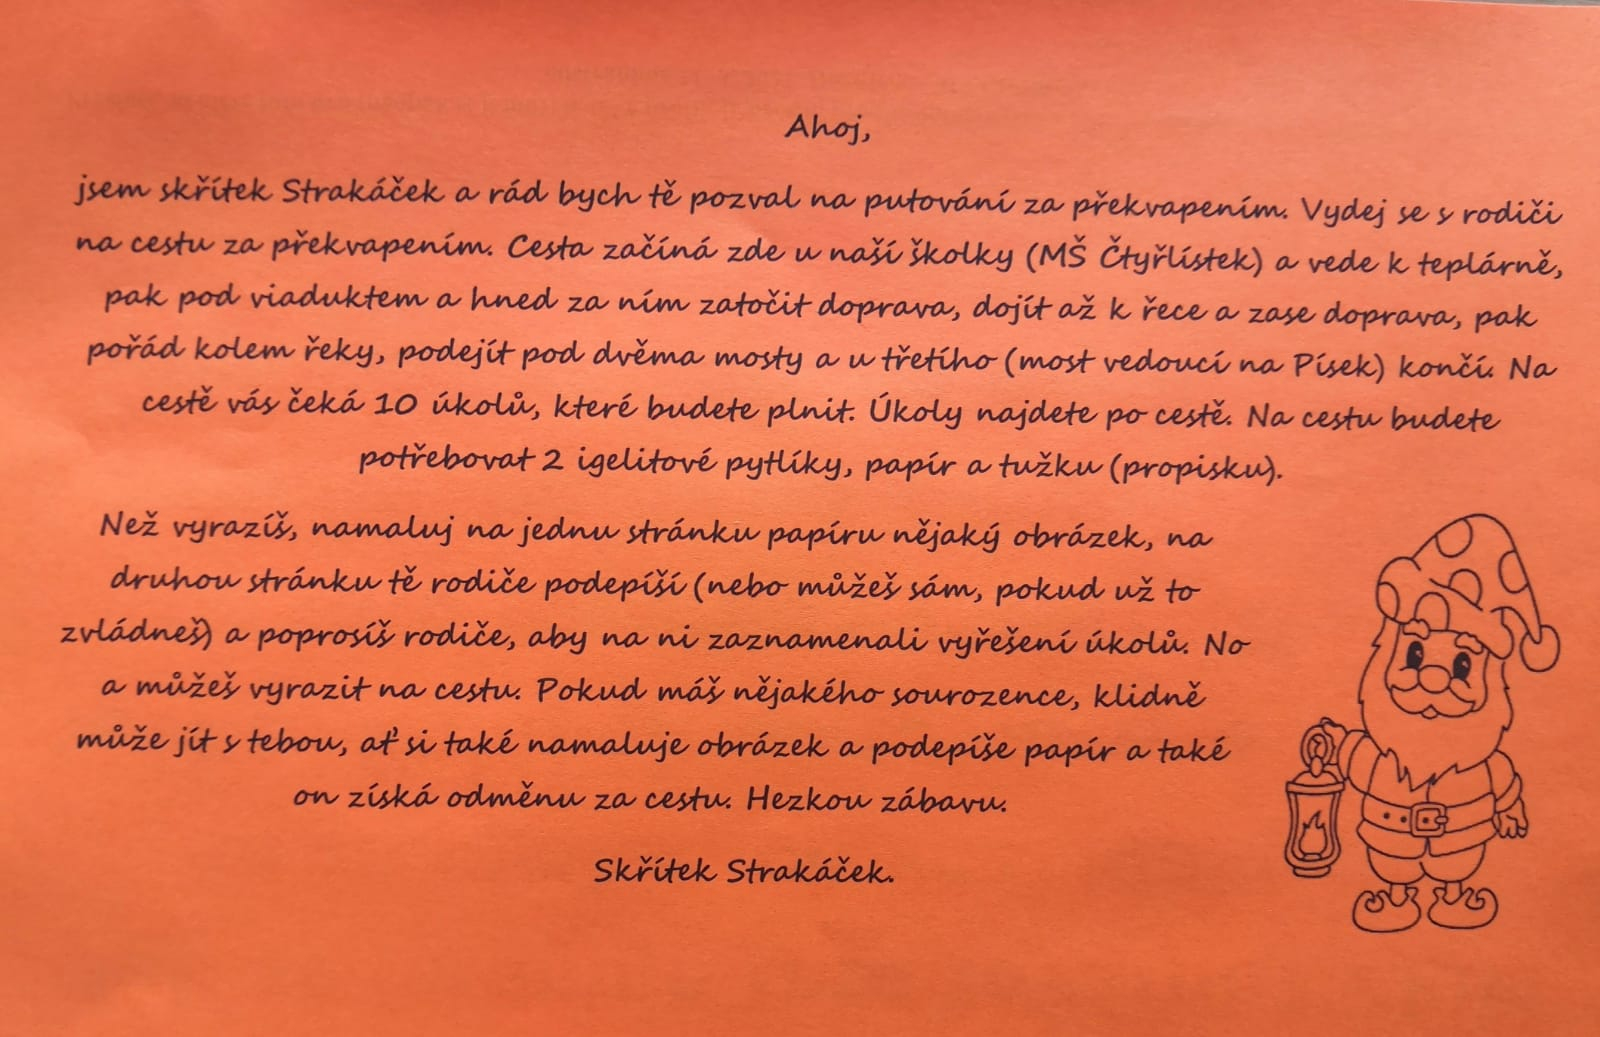 Ahoj,
jsem skřítek Strakáček a rád bych tě pozval na putování za překvapením. Vydej se s rodiči
na cestu za překvapením. Cesta začíná zde u naší školky (MŠ Čtyřlístek) a vede k teplárně,
pak pod viaduktem a hned za ním zatočit doprava, dojít až k řece a zase doprava, pak
pořád kolem řeky, podejít pod dvěma mosty a u třetího (most vedoucí na Písek) končí. Na
cestě vás čeká 10 úkolů, které budete plnit. Úkoly najdete po cestě. Na cestu budete
potřebovat 2 igelitové pytlíky, papír a tužku (propisku).
Než vyrazíš, namaluj na jednu stránku papíru nějaký obrázek, na
druhou stránku tě rodiče podepíší (nebo můžeš sám, pokud už to
zvládneš) a poprosíš rodiče, aby na ni zaznamenali vyřešení úkolů. No
a můžeš vyrazit na cestu. Pokud máš nějakého sourozence, klidně
může jít s tebou, ať si také namaluje obrázek a podepíše papír a také
on získá odměnu za cestu. Hezkou zábavu.
Skřítek Strakáček.